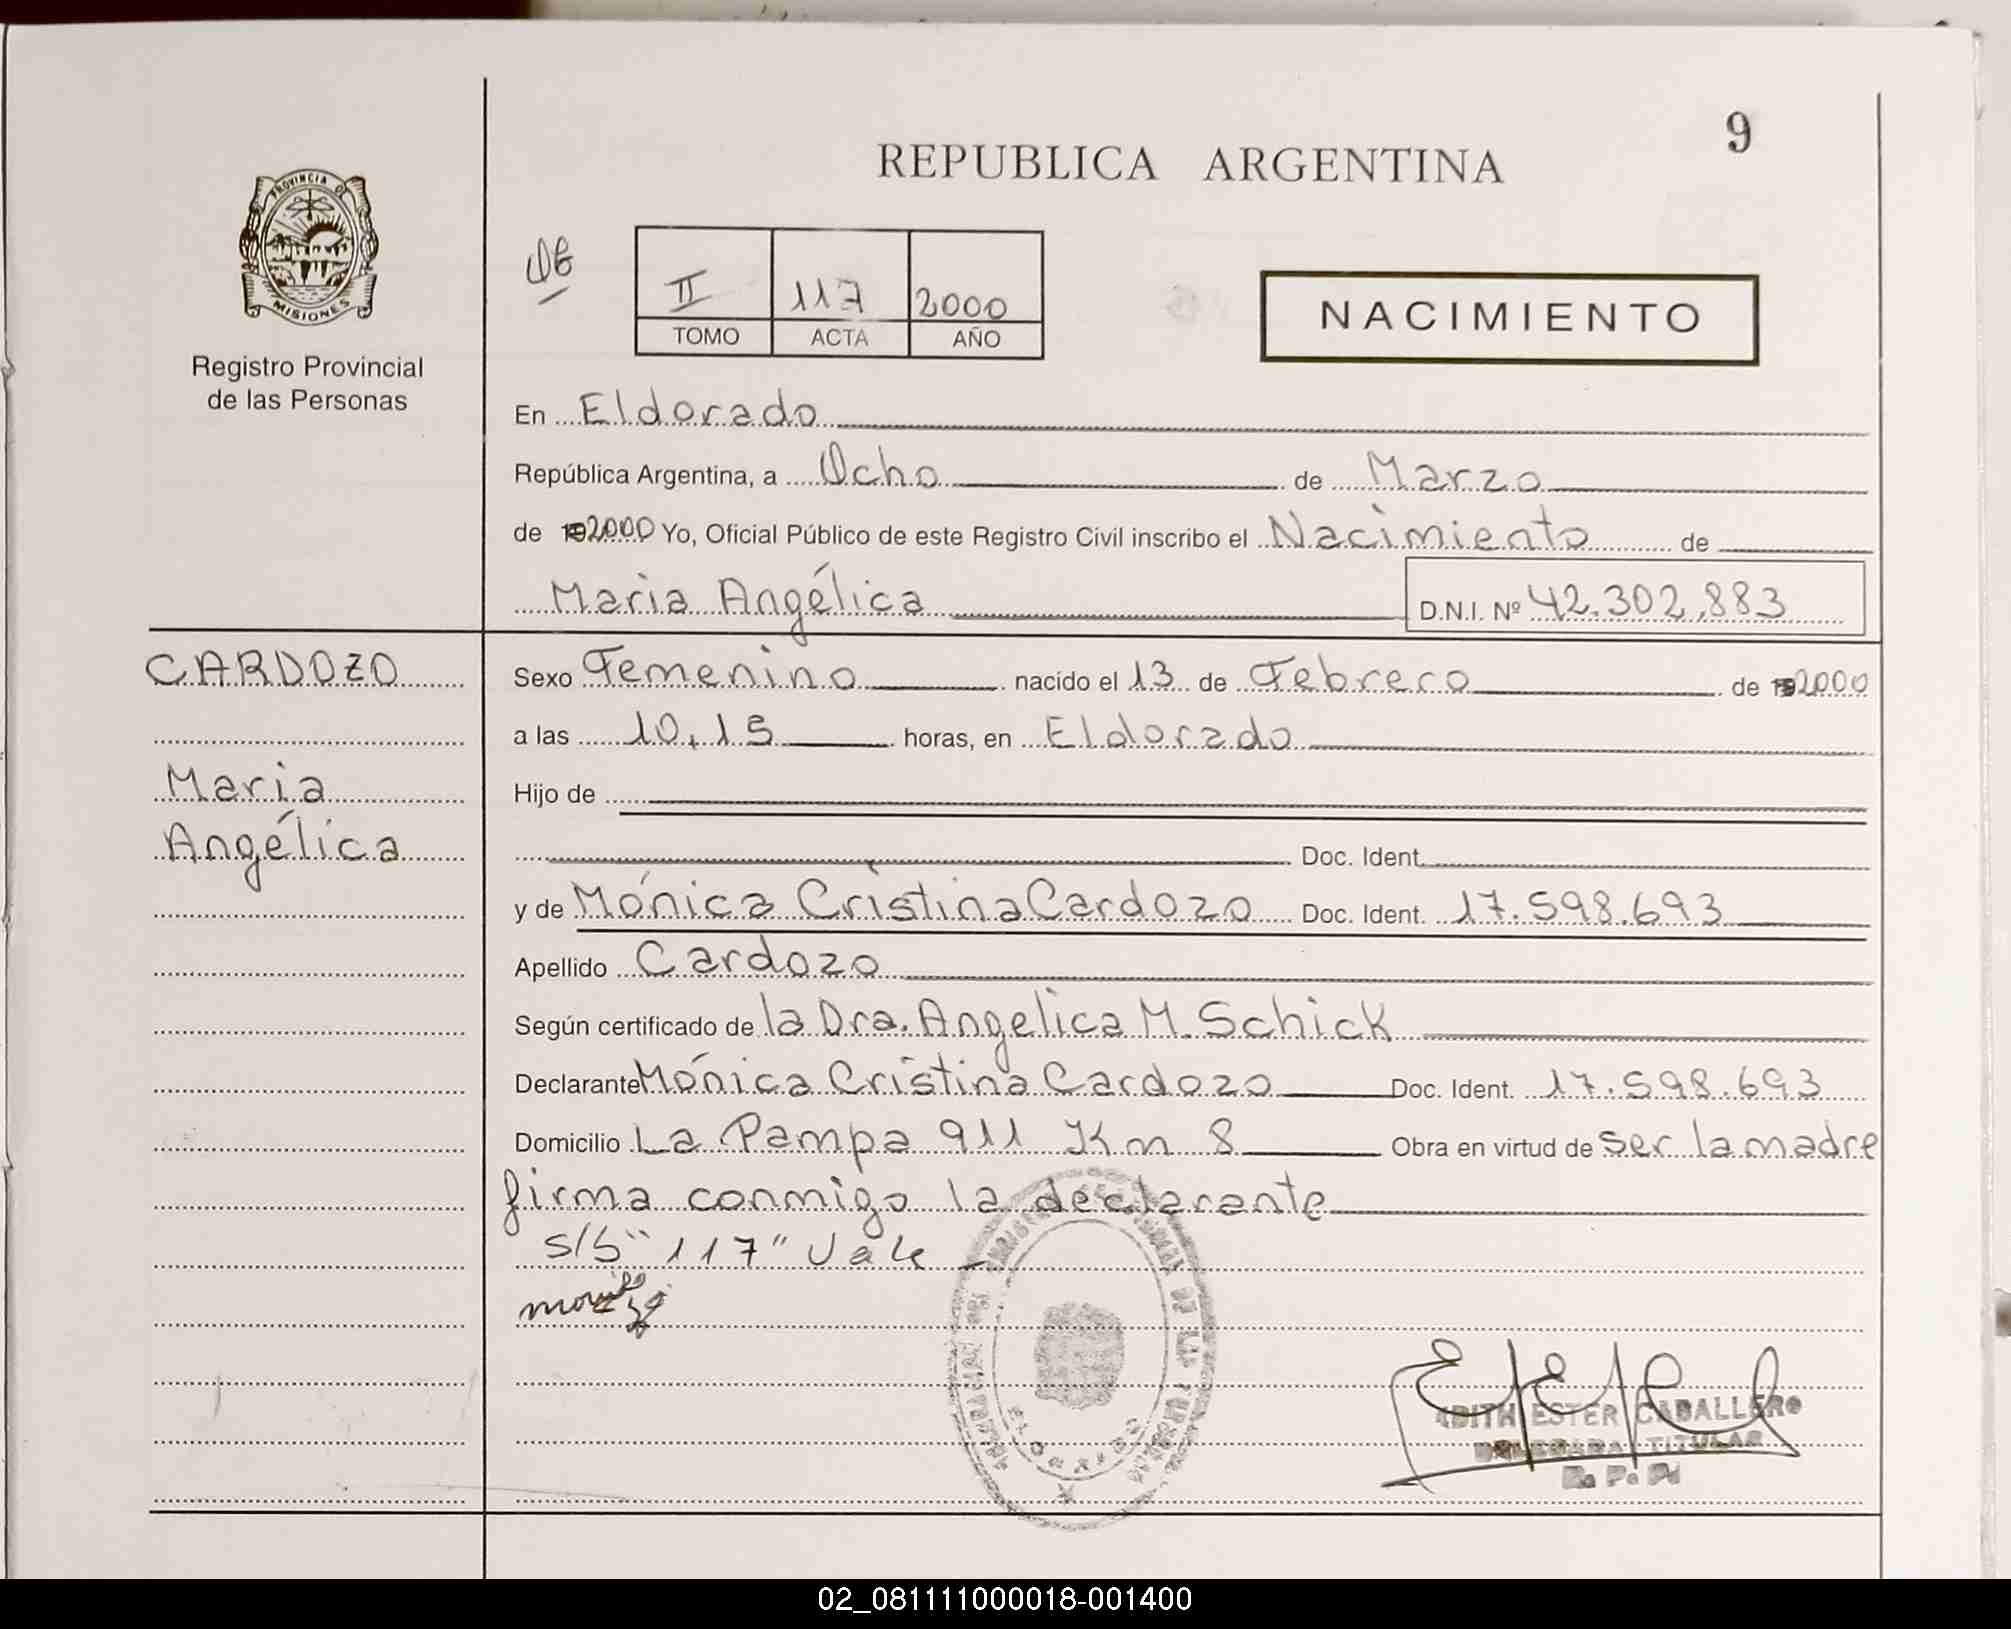 9
REPUBLICA ARGENTINA
PROVINCIA DE
MISIONES
Registro Provincial
de las Personas
II 117 2000
TOMO ACTA AÑO
NACIMIENTO
En Eldorado
República Argentina, a Ocho de Marzo
de 2000 Yo, Oficial Público de este Registro Civil inscribo el Nacimiento de
Maria Angélica D.N.I. Nº 42.302.883
CARDOZO
Maria
Angélica
Sexo Femenino nacido el 13 de Febrero de 2000
a las 10,15 horas, en Eldorado
Hijo de
Doc. Ident.
y de Mónica Cristina Cardozo Doc. Ident. 17.598.693
Apellido Cardozo
Según certificado de la Dra. Angelica M. Schick
Declarante Mónica Cristina Cardozo Doc. Ident. 17.598.693
Domicilio La Pampa 911 Km 8 Obra en virtud de ser la madre
firma conmigo la declarante
S/b "117" Vale
EDITH ESTER CABALLERO
DELEGADA TITULAR
R. P. P.
ELDORADO
02_081111000018-001400